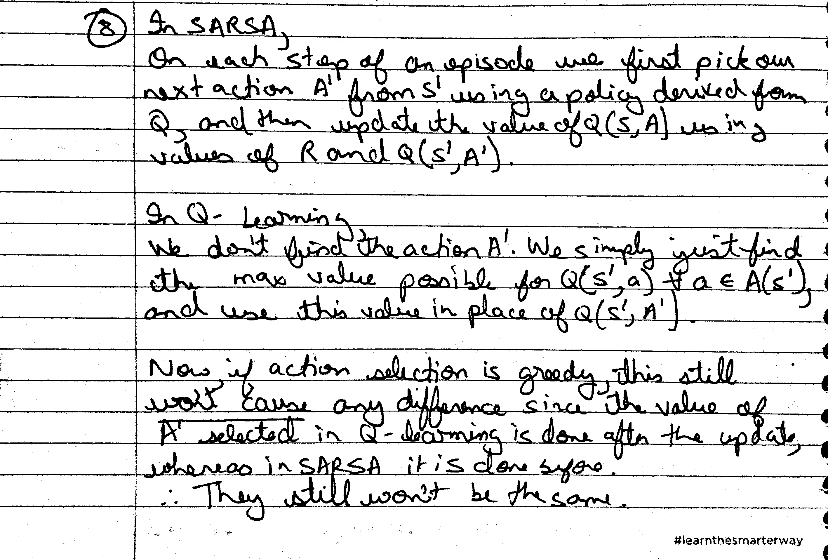 8 In SARSA,
On each step of an episode we first pick our
next action A' from S' using a policy derived from
Q, and then update the value of Q(S,A) using
values of R and Q(S',A').
In Q-Learning,
We don't find the action A'. We simply just find
the max value possible for Q(S',a) ∀ a ∈ A(s'),
and use this value in place of Q(S',A').
Now, if action selection is greedy, this still
won't cause any difference since the value of
A' selected in Q-learning is done after the update,
whereas in SARSA it is done before.
∴ They still won't be the same.
#learnthesmarterway